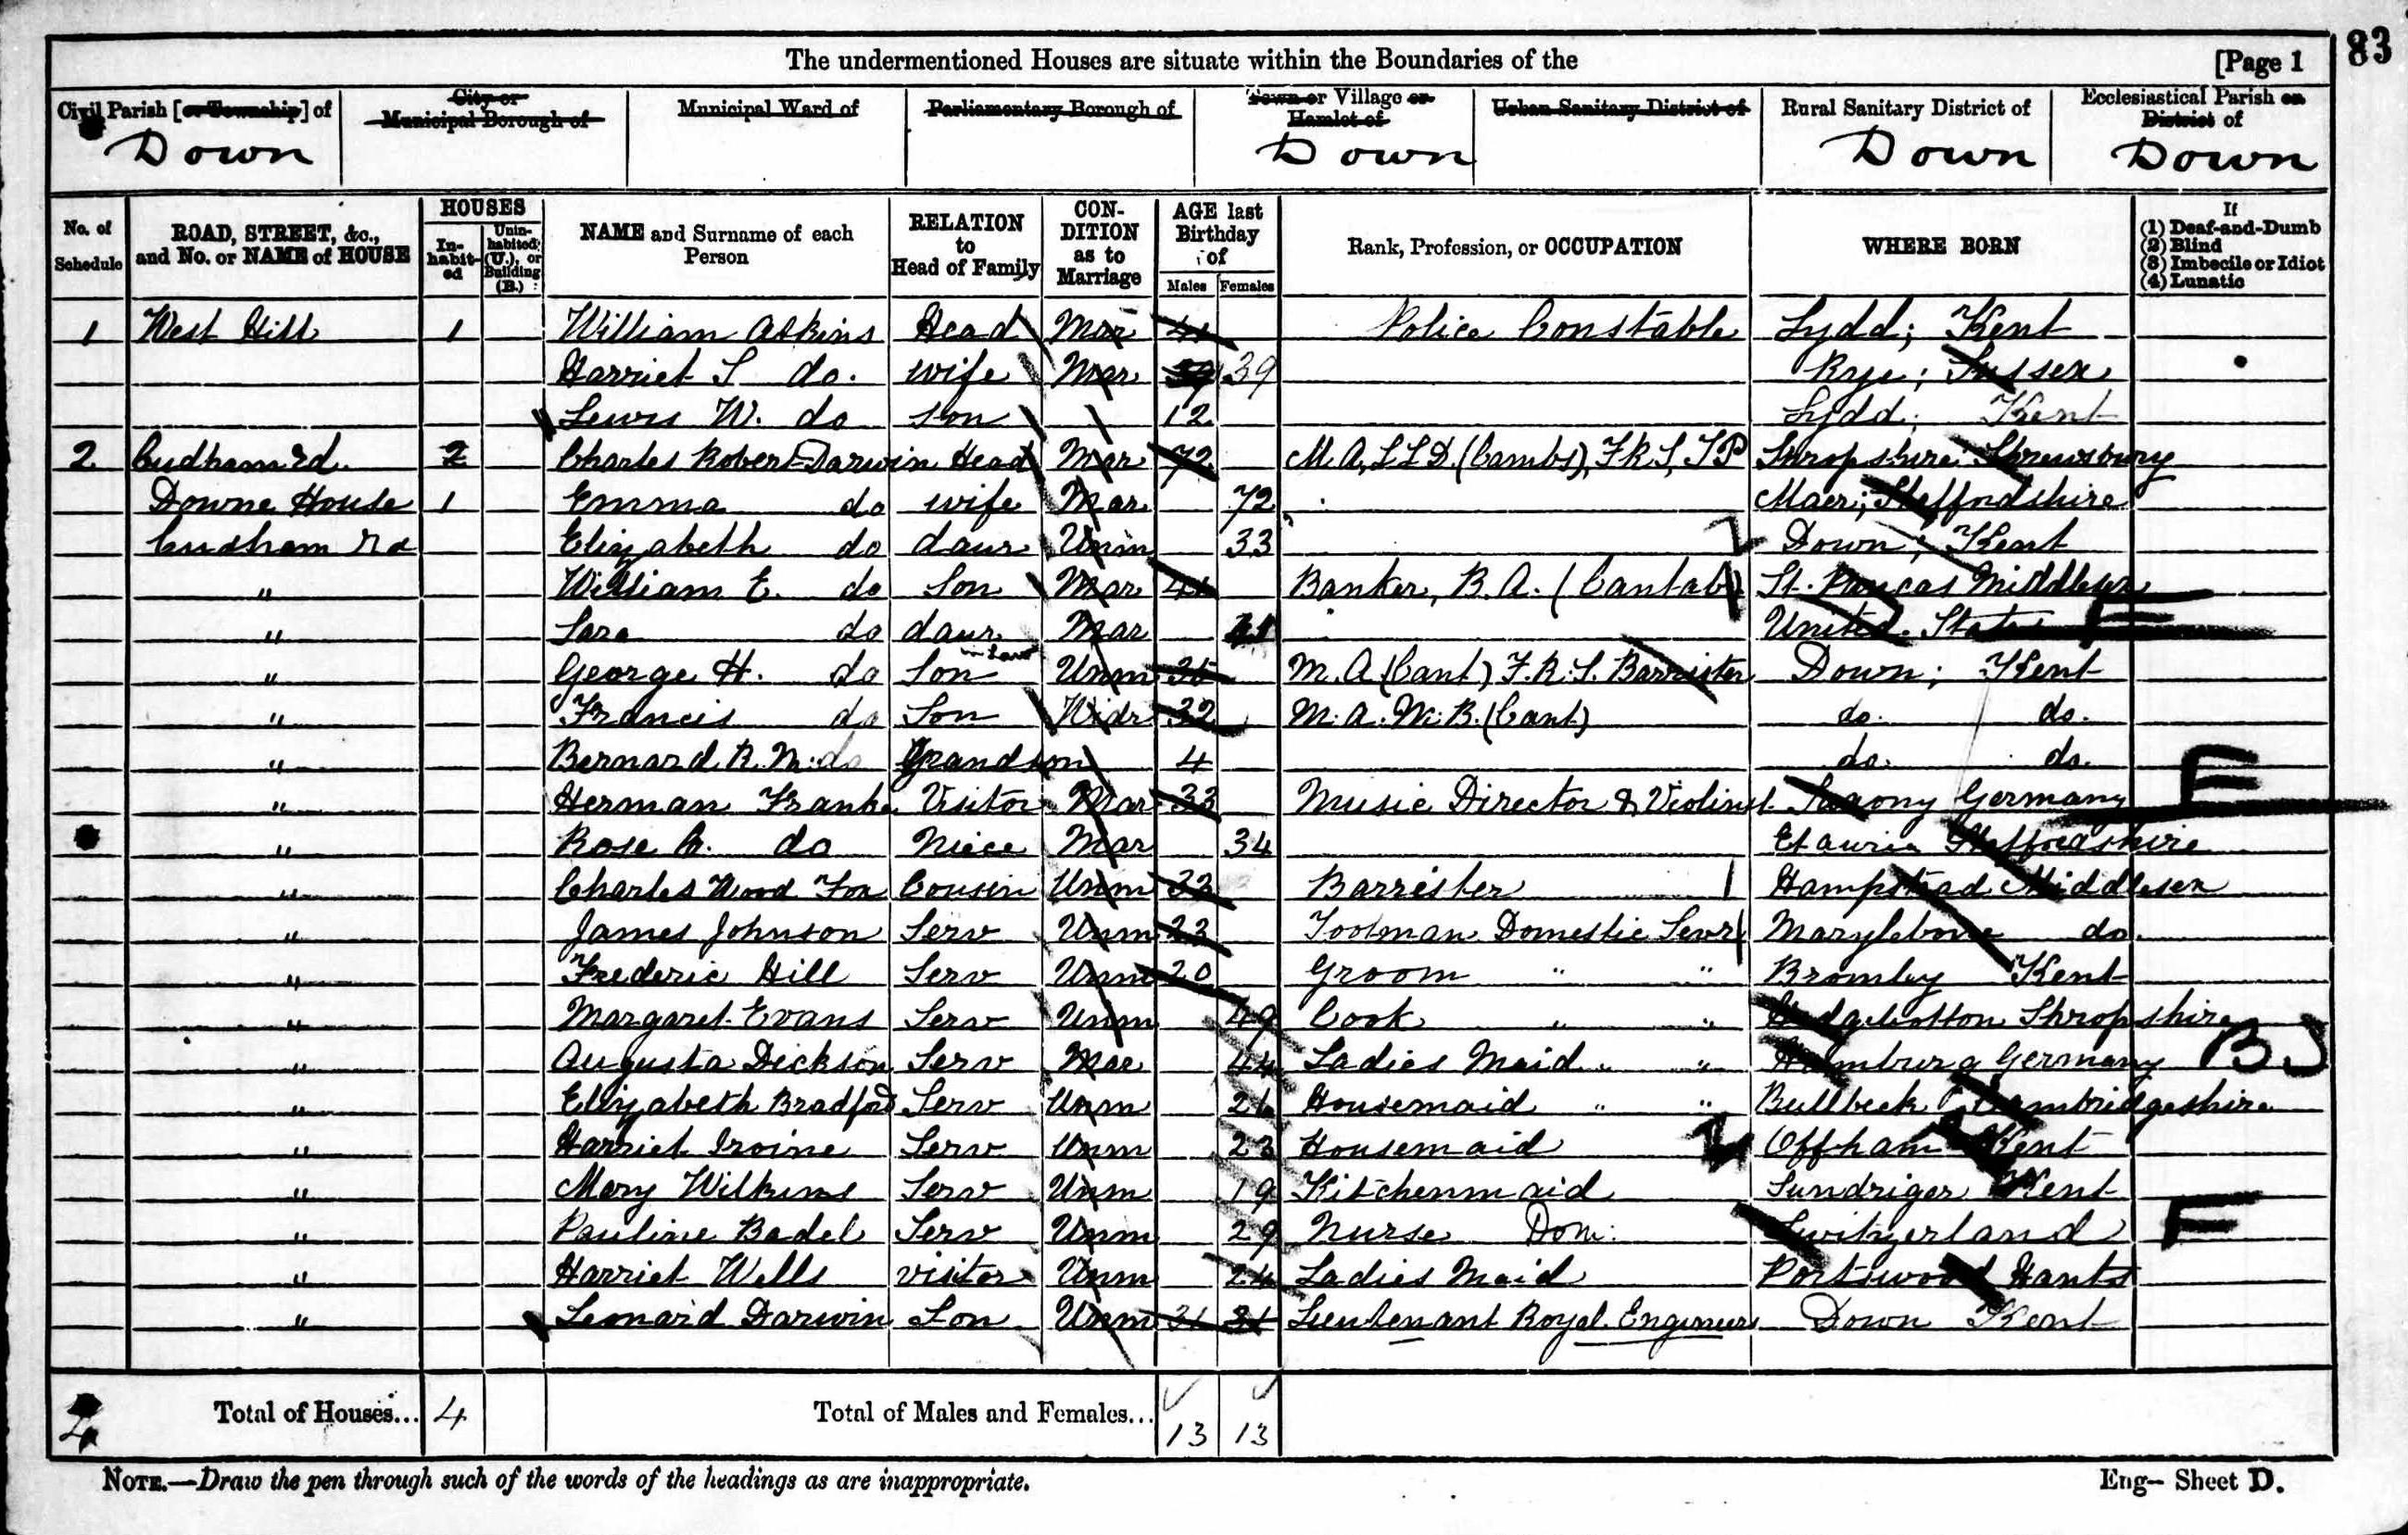 83
The undermentioned Houses are situate within the Boundaries of the [Page 1
Civil Parish [or Township] of City or Municipal Borough of Municipal Ward of Parliamentary Borough of Town or Village or Hamlet of Urban Sanitary District of Rural Sanitary District of Ecclesiastical Parish or District of
Down Down Down Down
No. of Schedule ROAD, STREET, &c., and No. or NAME of HOUSE HOUSES In-habit-ed Unin-habited (U.), or Building (B.) NAME and Surname of each Person RELATION to Head of Family CON-DITION as to Marriage AGE last Birthday of Males Females Rank, Profession, or OCCUPATION WHERE BORN If (1) Deaf-and-Dumb (2) Blind (3) Imbecile or Idiot (4) Lunatic
1 West Hill 1 William Atkins Head Mar 41 Police Constable Lydd; Kent
Harriet S do. wife Mar 39 39 Rye; Sussex
Lewis W. do son 12 Lydd; Kent
2 Cudham rd. 2 Charles Robert Darwin Head Mar 72 M.A, LLD. (Cambs), F.R.S, JP Shropshire Shrewsbury
Downe House 1 Emma do wife Mar 72 Maer; Staffordshire
Cudham Rd Elizabeth do daur Unm 33 Down; Kent
" William E. do Son Mar 41 Banker, B.A. (Cantab) St. Pancras Middlesex
" Sara do daur in Law Mar 41 United States F
" George H. do Son Unm 35 M.A (Cant) F.R.S. Barrister Down; Kent
" Francis do Son Widr 32 M.A. M.B. (Cant) do. do.
" Bernard R. M. do Grandson 4 do. do.
" Herman Franke Visitor Mar 33 Music Director & Violinist Saxony Germany F
" Rose C. do Niece Mar 34 Etauria Staffordshire
" Charles Wood Fox Cousin Unm 33 Barrister Hampstead Middlesex
" James Johnson Serv Unm 23 Footman Domestic Servt Marylebone do.
" Frederic Hill Serv Unm 20 Groom " " Bromley Kent
" Margaret Evans Serv Unm 49 Cook " " Shropshire
" Augusta Dickson Serv Mar 44 Ladies Maid " " Hamburg Germany BS
" Elizabeth Bradford Serv Unm 21 Housemaid " " Bullbeck Cambridgeshire
" Harriet Irvine Serv Unm 23 Housemaid Offham Kent
" Mary Wilkins Serv Unm 19 Kitchenmaid Sundriger Kent
" Pauline Badel Serv Unm 29 Nurse Dom. Switzerland F
" Harriet Wells visitor Unm 24 Ladies Maid Portswood Hants
" Leonard Darwin Son Unm 31 31 Lieutenant Royal Engineers Down Kent
Total of Houses... 4 Total of Males and Females... 13 13
NOTE.—Draw the pen through such of the words of the headings as are inappropriate. Eng— Sheet D.